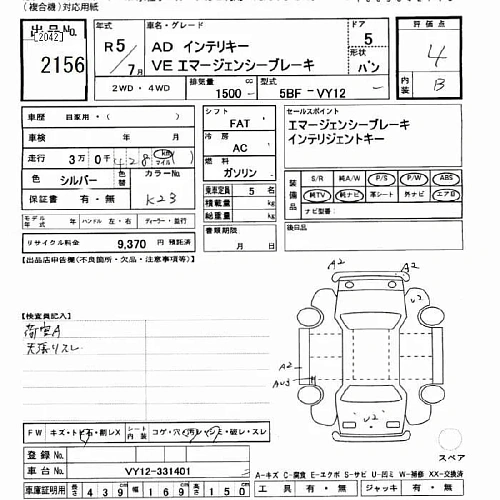 (複合機)対応用紙
出品No.
[2042]
2156
年式
R5/7月
車名・グレード
AD インテリキー
VE エマージェンシーブレーキ
ドア
5
形状
バン
評価点
4
内装
B
2WD・4WD
排気量
1500 cc
型式
5BF-VY12
車歴 自家用・( )
車検 年 月
走行 3万0千428 km マイル ( )
色 シルバー
色替
カラーNo.
K23
保証書 有・無
モデル年式 年
ハンドル 左・右
ディーラー・並行
リサイクル料金 9,370 円 預託済
シフト
FAT
冷房
AC
燃料
ガソリン
乗車定員 5 名
積載量 kg
総重量 kg
書類期限
月 日
セールスポイント
エマージェンシーブレーキ
インテリジェントキー
装備品
S/R 純A/W P/S P/W ABS
純TV 純ナビ 革シート 外ナビ エアB
ナビ型番:
後日品
【出品店申告欄(不良箇所・欠品・注意事項等)】
【検査員記入】
荷室A
天張りスレ
A2
A2
U2
A2
AU3
U2
FW キズ・トビ石・割レX
シート内装 コゲ・穴・汚レ・シミ・破レ・スレ
登録No.
車台No. VY12-331401
スペア
A-キズ C-腐食 E-エクボ S-サビ U-凹ミ W-補修 XX-交換済
車庫証明用 長さ 439 幅 169 高さ 150
工具 有・無 ジャッキ 有・無